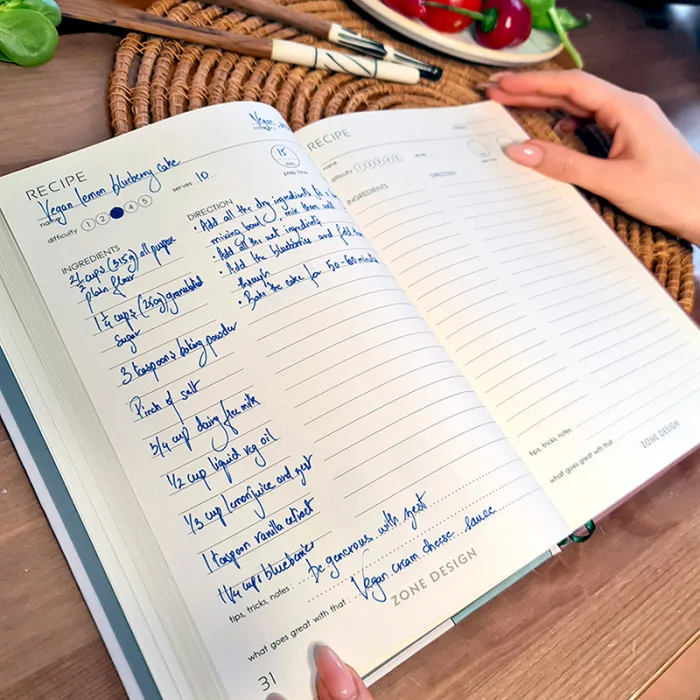 RECIPE
Vegan
category
Vegan lemon blueberry cake
name
difficulty 1 2 4 5
serves 10
15
prep time
INGREDIENTS
2 1/2 cups (315g) all purpose
plain flour
1 1/4 cups (250g) granulated
Sugar
3 teaspoons baking powder
Pinch of salt
3/4 cup dairy free milk
1/2 cup liquid veg oil
1/3 cup lemon juice and zest
1 teaspoon vanilla extract
1 1/4 cups blueberries
DIRECTION
• Add all the dry ingredients
mixing bowl, mix them well
• Add all the wet ingredients
• Add the blueberries and fold
through
• Bake the cake for 50-60 minutes
tips, tricks, notes : Be generous with zest
what goes great with that : Vegan cream cheese sauce
ZONE DESIGN
31
RECIPE
name
difficulty 1 2 3 4 5
serves
INGREDIENTS
DIRECTION
tips, tricks, notes :
what goes great with that :
ZONE DESIGN